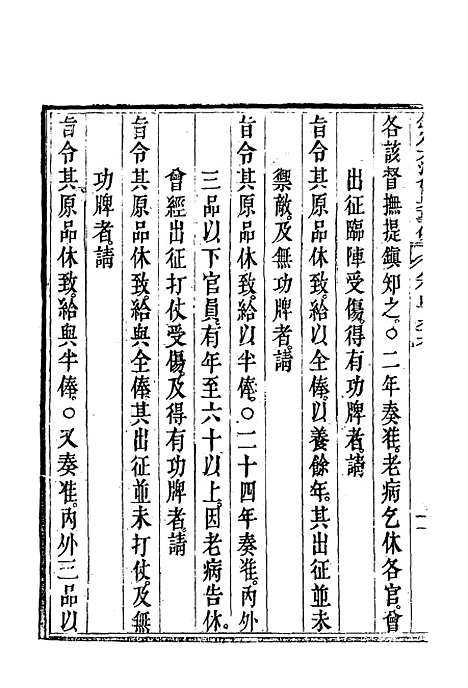 各該督撫提鎮知之○二年奏准老病乞休各官曾
出征臨陣受傷得有功牌者請
旨令其原品休致給以全俸以養餘年其出征並未
禦敵及無功牌者請
旨令其原品休致給以半俸○二十四年奏准內外
三品以下官員有年至六十以上因老病告休
曾經出征打仗受傷及得有功牌者請
旨令其原品休致給與全俸其出征並未打仗及無
功牌者請
旨令其原品休致給與半俸○又奏准內外三品以